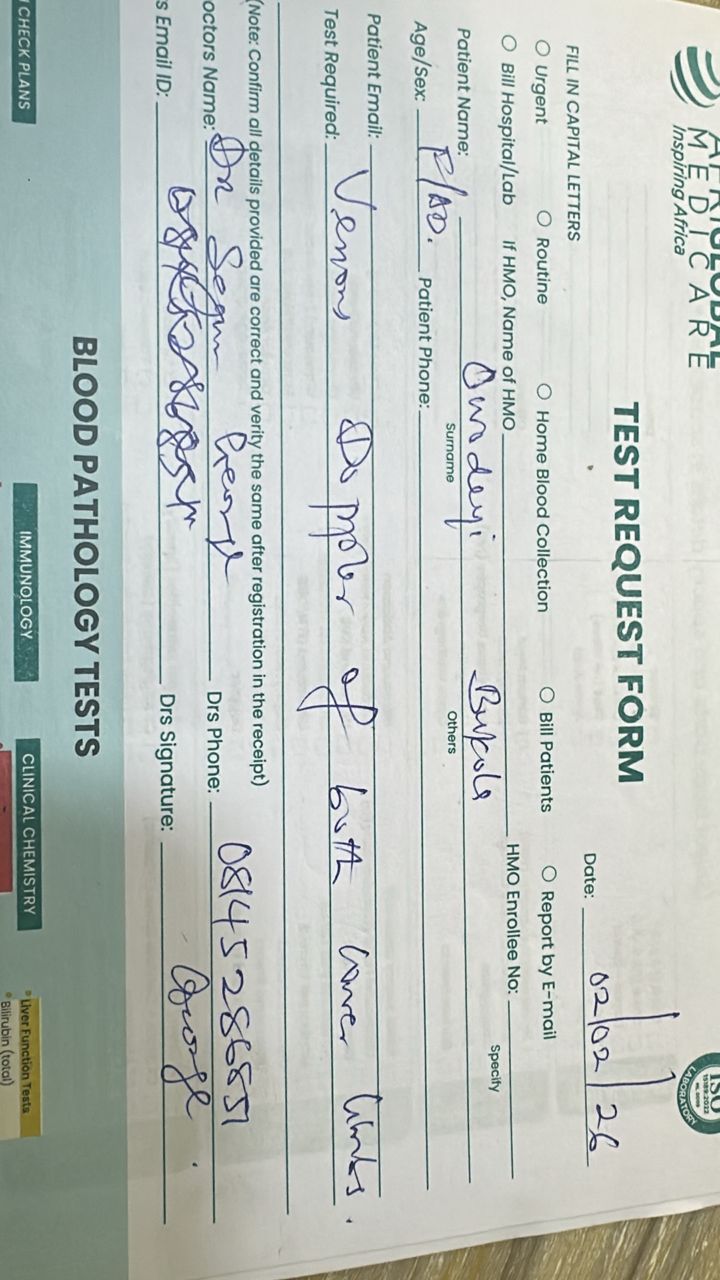 AFRIGLOBAL
MEDICARE
Inspiring Africa
ISO
15189:2022
LABORATORY
TEST REQUEST FORM
Date: 02/02/26
FILL IN CAPITAL LETTERS
Urgent Routine Home Blood Collection Bill Patients Report by E-mail
Bill Hospital/Lab If HMO, Name of HMO HMO Enrollee No:
Specify
Patient Name: Bukola
Surname Others
Age/Sex: F/AD. Patient Phone:
Patient Email:
Test Required: Venous Doppler of both lower limbs.
(Note: Confirm all details provided are correct and verity the same after registration in the receipt)
octors Name: Dr Segun George Drs Phone:
s Email ID: Drs Signature: George
BLOOD PATHOLOGY TESTS
CHECK PLANS IMMUNOLOGY CLINICAL CHEMISTRY
Liver Function Tests
Bilirubin (total)